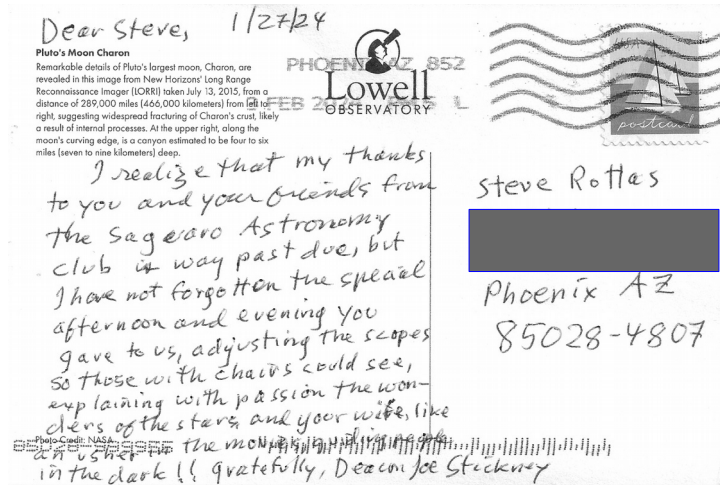 Dear Steve, 1/27/24
Pluto's Moon Charon
Remarkable details of Pluto's largest moon, Charon, are
revealed in this image from New Horizons' Long Range
Reconnaissance Imager (LORRI) taken July 13, 2015, from a
distance of 289,000 miles (466,000 kilometers) from left to
right, suggesting widespread fracturing of Charon's crust, likely
a result of internal processes. At the upper right, along the
moon's curving edge, is a canyon estimated to be four to six
miles (seven to nine kilometers) deep.
PHOENIX AZ 852
FEB
Lowell
OBSERVATORY
L
postcard
I realize that my thanks
to you and your friends from
the Saguaro Astronomy
club is way past due, but
I have not forgotten the special
afternoon and evening you
gave to us, adjusting the scopes
so those with chairs could see,
explaining with passion the won-
ders of the stars, and your wife, like
an usher in the movies, guiding people
in the dark!! Gratefully, Deacon Joe Stickney
Photo Credit: NASA
Steve Rottas
Phoenix AZ
85028-4807